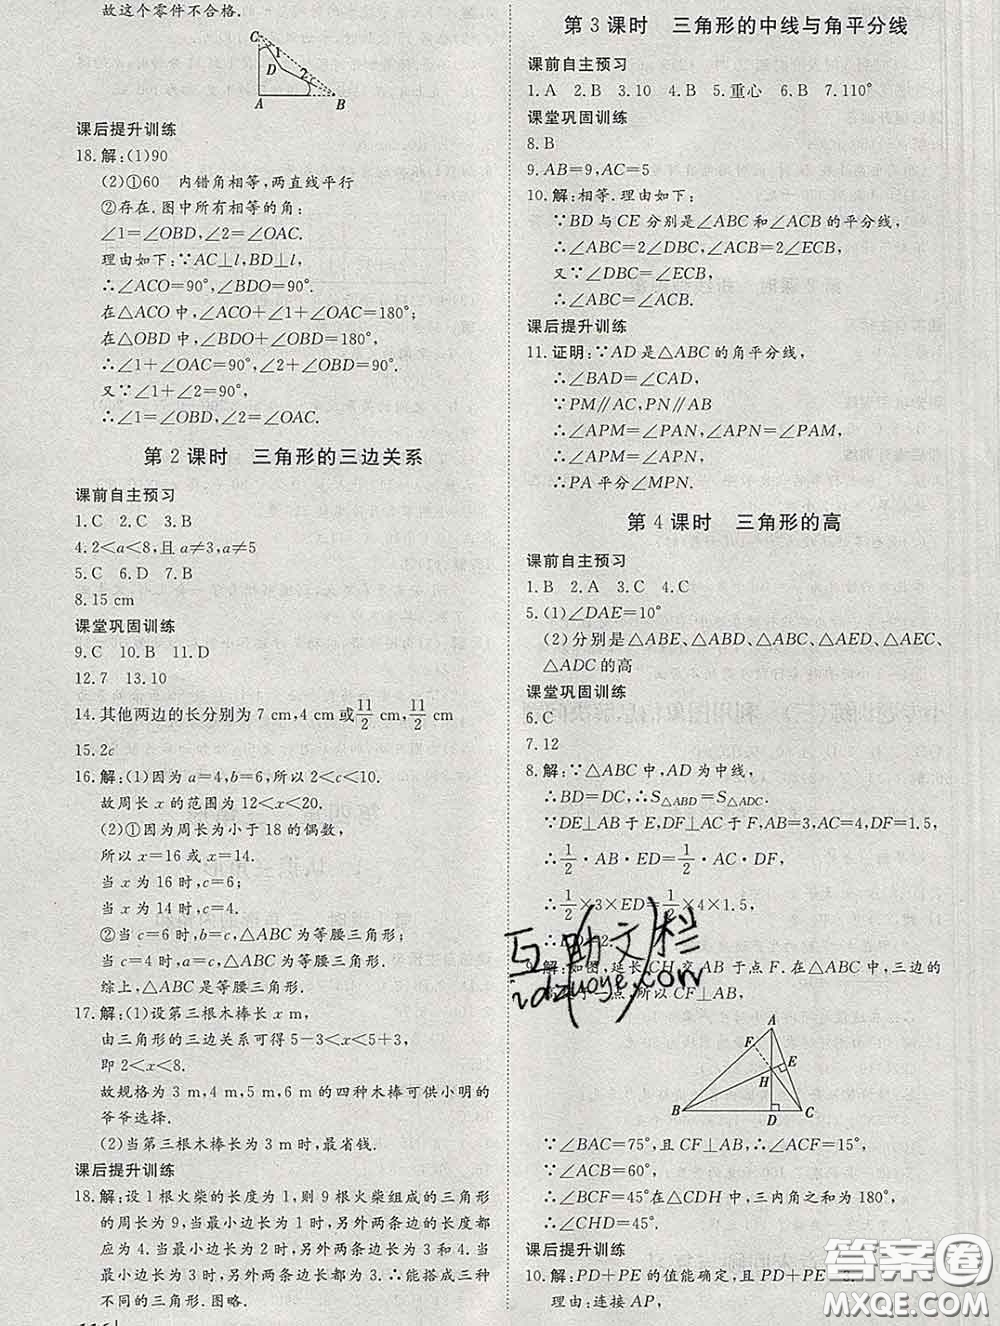 故这个零件不合格.
C
1
D
2
A
B
课后提升训练
18.解:(1)90
(2)①60 内错角相等,两直线平行
②存在.图中所有相等的角:
∠1=∠OBD,∠2=∠OAC.
理由如下:∵AC⊥l,BD⊥l,
∴∠ACO=90°,∠BDO=90°.
在△ACO中,∠ACO+∠1+∠OAC=180°;
在△OBD中,∠BDO+∠2+∠OBD=180°,
∴∠1+∠OAC=90°,∠2+∠OBD=90°.
又∵∠1+∠2=90°,
∴∠1=∠OBD,∠2=∠OAC.
第2课时 三角形的三边关系
课前自主预习
1.C 2.C 3.B
4.2<a<8,且a≠3,a≠5
5.C 6.D 7.B
8.15 cm
课堂巩固训练
9.C 10.B 11.D
12.7 13.10
14.其他两边的长分别为7 cm,4 cm或11/2 cm,11/2 cm
15.2c
16.解:(1)因为a=4,b=6,所以2<c<10.
故周长x的范围为12<x<20.
(2)①因为周长为小于18的偶数,
所以x=16或x=14.
当x为16时,c=6;
当x为14时,c=4.
②当c=6时,b=c,△ABC为等腰三角形;
当c=4时,a=c,△ABC为等腰三角形.
综上,△ABC是等腰三角形.
17.解:(1)设第三根木棒长x m,
由三角形的三边关系可得5-3<x<5+3,
即2<x<8.
故规格为3 m,4 m,5 m,6 m的四种木棒可供小明的
爷爷选择.
(2)当第三根木棒长为3 m时,最省钱.
课后提升训练
18.解:设1根火柴的长度为1,则9根火柴组成的三角形
的周长为9,当最小边长为1时,另外两条边的长度都
应为4.当最小边长为2时,另外两条边长为3和4.当
最小边长为3时,另外两条边长为3.∴能搭成三种
不同的三角形.图略.
第3课时 三角形的中线与角平分线
课前自主预习
1.A 2.B 3.10 4.B 5.重心 6.B 7.110°
课堂巩固训练
8.B
9.AB=9,AC=5
10.解:相等.理由如下:
∵BD与CE分别是∠ABC和∠ACB的平分线,
∴∠ABC=2∠DBC,∠ACB=2∠ECB,
又∵∠DBC=∠ECB,
∴∠ABC=∠ACB.
课后提升训练
11.证明:∵AD是△ABC的角平分线,
∴∠BAD=∠CAD,
∵PM∥AC,PN∥AB
∴∠APM=∠PAN,∠APN=∠PAM,
∴∠APM=∠APN,
∴PA平分∠MPN.
第4课时 三角形的高
课前自主预习
1.B 2.A 3.C 4.C
5.(1)∠DAE=10°
(2)分别是△ABE、△ABD、△ABC、△AED、△AEC、
△ADC的高
课堂巩固训练
6.C
7.12
8.解:∵△ABC中,AD为中线,
∴BD=DC,∴S△ABD=S△ADC.
∵DE⊥AB于E,DF⊥AC于F,AB=3,AC=4,DF=1.5,
∴1/2·AB·ED=1/2·AC·DF,
∴1/2×3×ED=1/2×4×1.5,
∴ED=2.
互助文档
9.解:如图,延长CH交AB于点F.在△ABC中,三边的
高交于一点,所以CF⊥AB,
A
F
E
H
B
D
C
∵∠BAC=75°,且CF⊥AB,∴∠ACF=15°,
∵∠ACB=60°,
∴∠BCF=45°在△CDH中,三内角之和为180°,
∴∠CHD=45°.
课后提升训练
10.解:PD+PE的值能确定,且PD+PE=
理由:连接AP,
答案圈
MXQE.COM